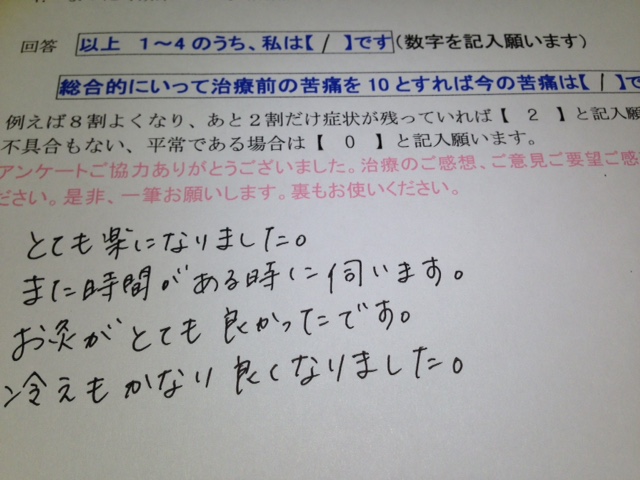 回答 以上 1～4のうち、私は【 / 】です(数字を記入願います)
総合的にいって治療前の苦痛を10とすれば今の苦痛は【 / 】で
例えば8割よくなり、あと2割だけ症状が残っていれば【 2 】と記入願
不具合もない、平常である場合は【 0 】と記入願います。
アンケートご協力ありがとうございました。治療のご感想、ご意見ご要望ご感
ださい。是非、一筆お願いします。裏もお使いください。
とても楽になりました。
また時間がある時に伺います。
お灸がとても良かったです。
冷えもかなり良くなりました。